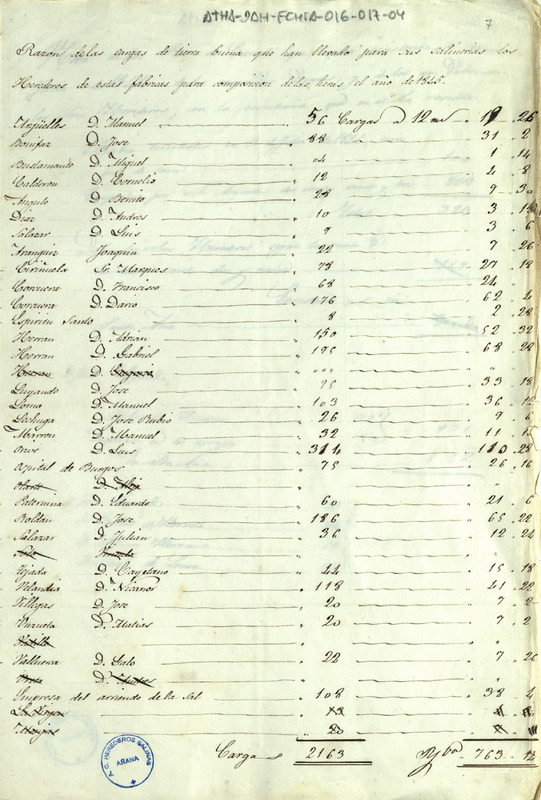 ATHA-DAH-FCHSA-016-017-04
7
Razon de las cargas de tierra buena que han llevado para sus salinerias los
Herederos de estas fabricas para composicion de las heras el año de 1845.
Argüelles D. Manuel 56 Cargas a 12 mrs 19 . 26
Bonifaz D. Jose 88 31 . 2
Bustamante D. Miguel 1 . 14
Calderon D. Cornelio 12 4 . 8
Angulo D. Benito 28 9 . 30
Diaz D. Andres 10 3
Salazar D. Luis 9 3 . 6
Aranguiz Joaquin 22 7 . 26
Sr. Marques 78 27 . 18
Corcuera D. Francisco 68 24 .
Corcuera D. Darro 176 62 . 4
Espiritu Santo 8 2 . 28
Herran D. Adrian 150 52 . 32
Herran D. Gabriel 195 68 . 28
Lugando D. Jose 95 33 . 18
Loma D. Manuel 103 36 . 12
D. Jose Rubio 26 9 . 6
D. Manuel 32 11
D. Luis 314 110 . 28
Ospital de Burgos 75 26 . 16
Paternina D. Eduardo 60 21 . 6
Roldan D. Jose 186 65 . 22
Salazar D. Julian 36 12 . 24
Tejada D. Cayetano 44 15 . 18
Velandia D. Nicanor 118 41 . 22
Villegas D. Jose 20 7 . 2
D. Matias 20 7 . 2
Valluerca D. Galo 22 7 . 26
Empresa del arriendo de la Sal 108 38 . 4
Cargas 2163 Rs von 763 . 12
A.C. HEREDEROS SALINAS
AÑANA